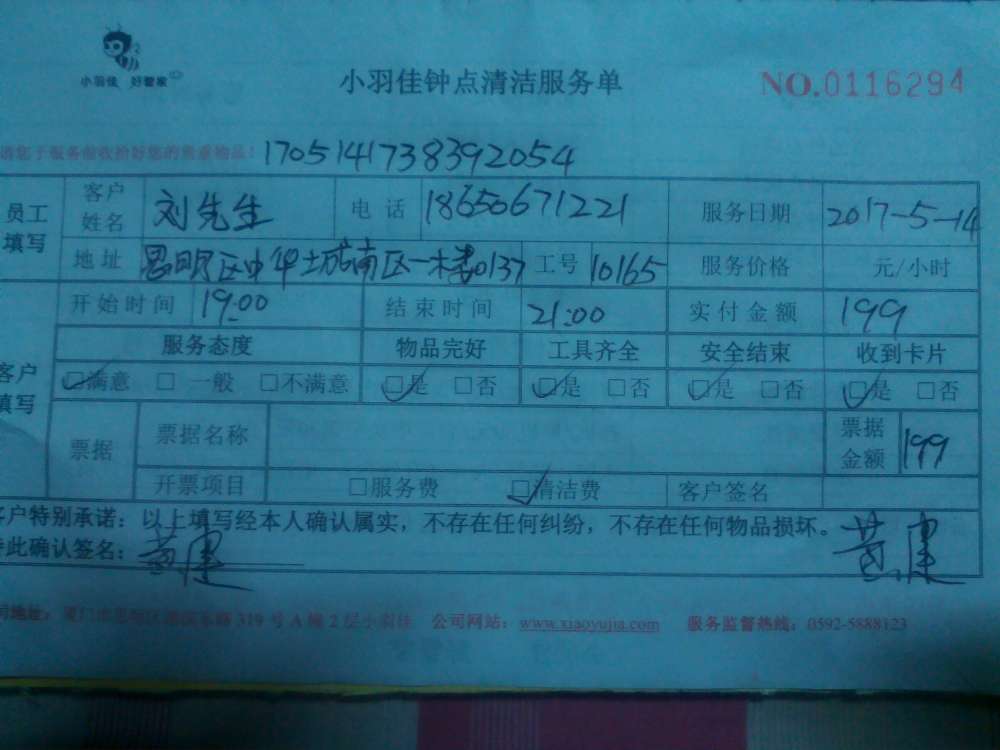 小羽佳 好管家
小羽佳钟点清洁服务单
NO.0116294
请您于服务前收拾好您的贵重物品! 1705141738392054
员工填写 客户姓名 刘先生 电话 18650671221 服务日期 2017-5-14
地址 思明区中华城南区一楼0137 工号 10165 服务价格 元/小时
客户填写 开始时间 19:00 结束时间 21:00 实付金额 199
服务态度 物品完好 工具齐全 安全结束 收到卡片
☑满意 □一般 □不满意 ☑是 □否 ☑是 □否 ☑是 □否 ☑是 □否
票据 票据名称 票据金额 199
开票项目 □服务费 ☑清洁费 客户签名
客户特别承诺:以上填写经本人确认属实,不存在任何纠纷,不存在任何物品损坏。
特此确认签名: 黄建 黄建
公司地址: 厦门市思明区 319号A幢2层小羽佳 公司网站:www.xiaoyujia.com 服务监督热线:0592-5888123